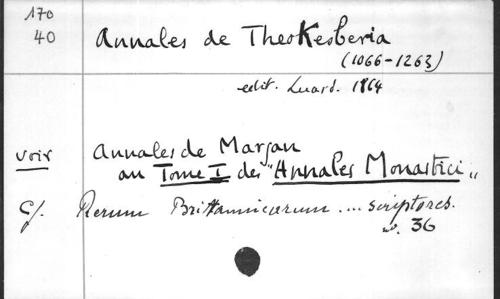 170
40
Annales de TheoKesberia
(1066-1263)
edit. Luard. 1864
voir
Annales de Margan
au Tome I des "Annales Monastici"
Cf. Rerum Brittannicarum .... scriptores.
n. 36